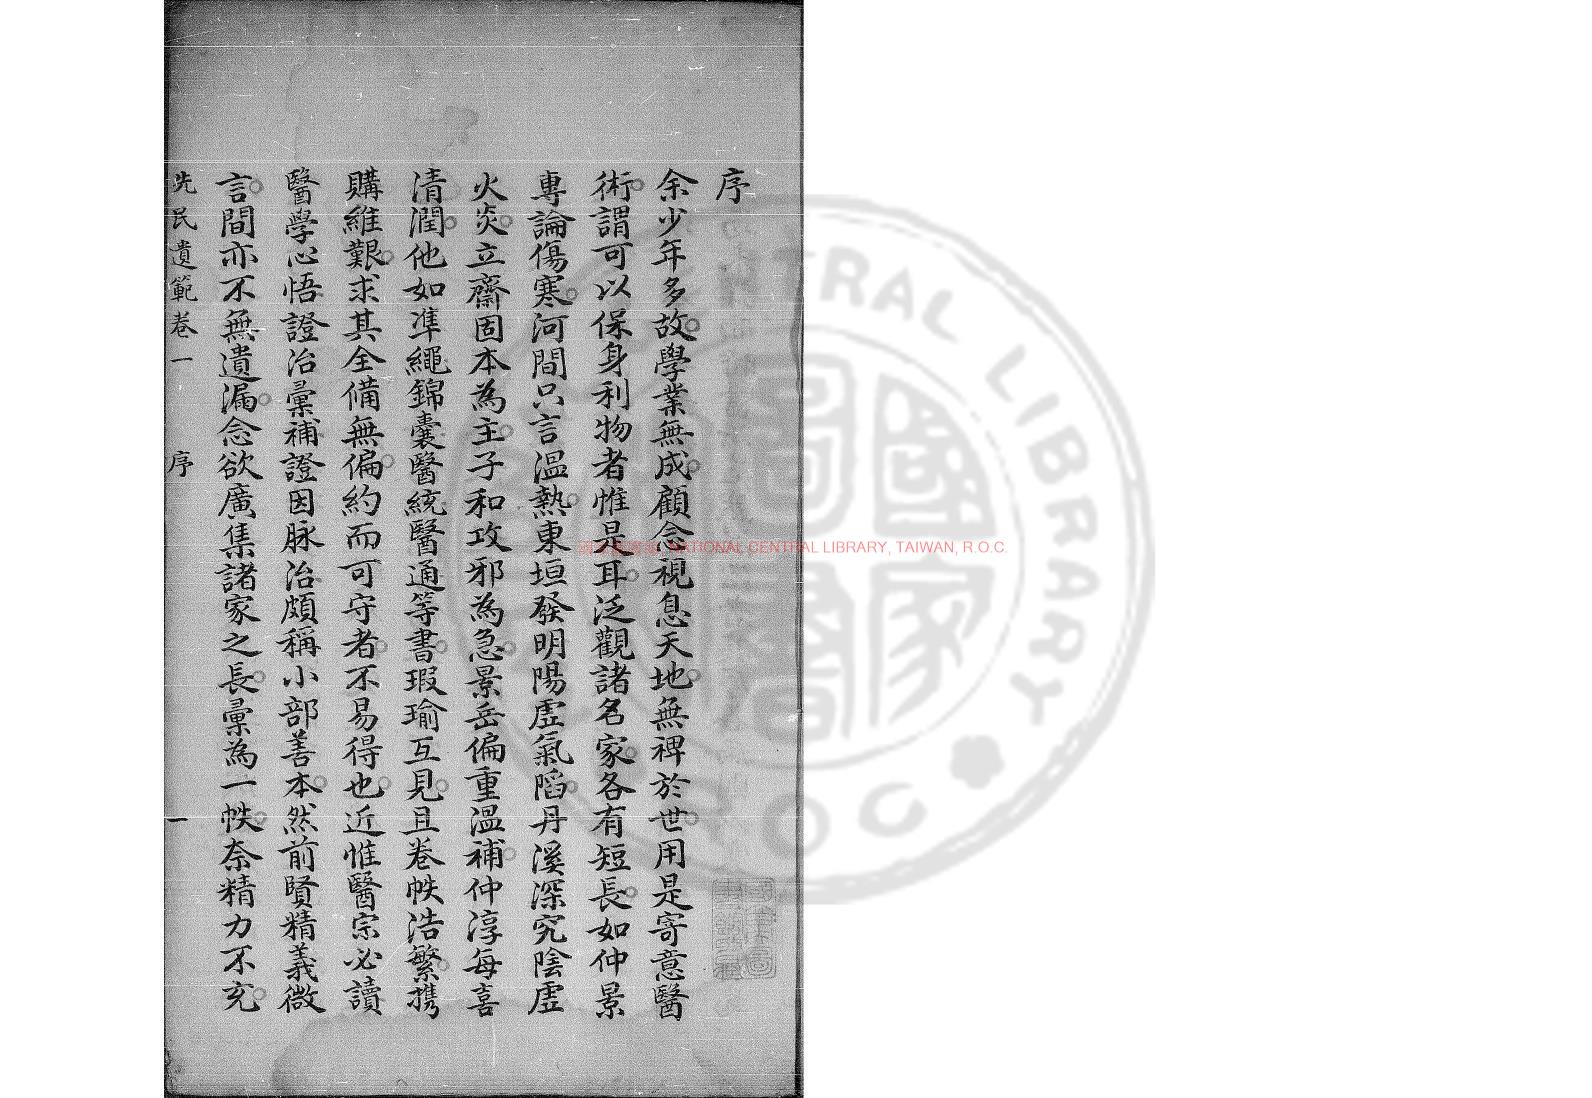 序
余少年多故學業無成顧念視息天地無裨於世用是寄意醫
術謂可以保身利物者惟是耳泛觀諸名家各有短長如仲景
專論傷寒河間只言溫熱東垣發明陽虛氣陷丹溪深究陰虛
火炎立齋固本為主子和攻邪為急景岳偏重溫補仲淳每喜
清潤他如準繩錦囊醫統醫通等書瑕瑜互見且卷帙浩繁携
購維艱求其全備無偏約而可守者不易得也近惟醫宗必讀
醫學心悟證治彙補證因脉治頗稱小部善本然前賢精義微
言間亦不無遺漏念欲廣集諸家之長彙為一帙奈精力不充
先民遺範卷一 序 一
國家圖書館, NATIONAL CENTRAL LIBRARY, TAIWAN, R.O.C.